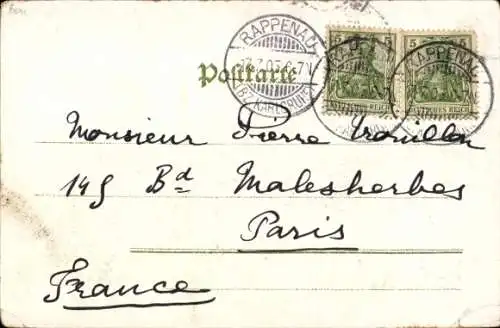 RAPPENAU
Postkarte
BZ. KARLSRUHE
5 5 5 5
RAPPENAU
DEUTSCHES REICH
Monsieur Pierre Trouillon
145 Bd Malesherbes
Paris
France